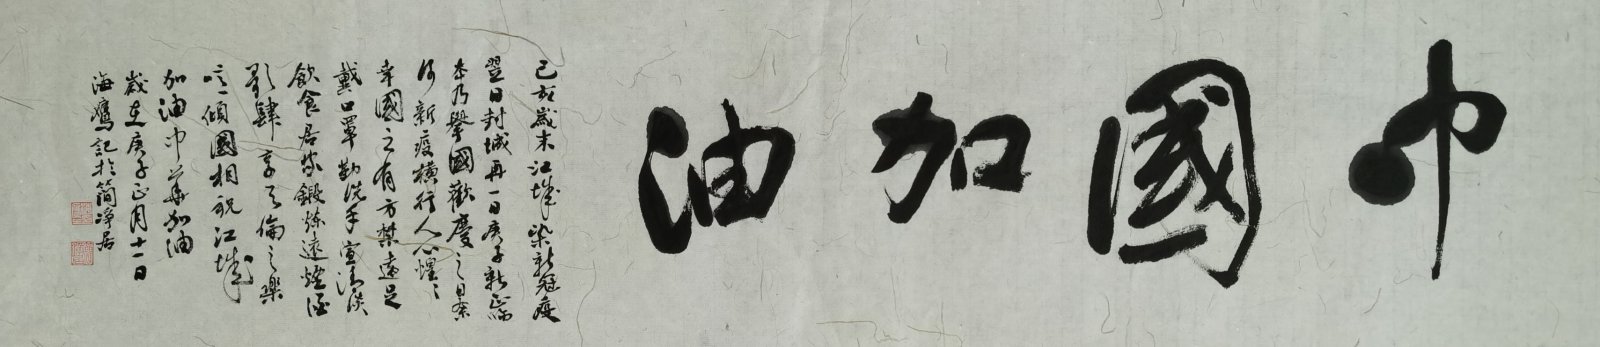 中國加油
己亥歲末江城染新冠疫
翌日封城再一日庚子新正臨
本乃舉國歡慶之日奈
何新疫橫行人心惶々
幸國之有方禁遠足
戴口罩勤洗手宜清淡
飲食居家鍛煉遠煙酒
歌肆享天倫之樂
傾國相祝江城
加油中華加油
歲在庚子正月十一日
海鷹記於簡淨居